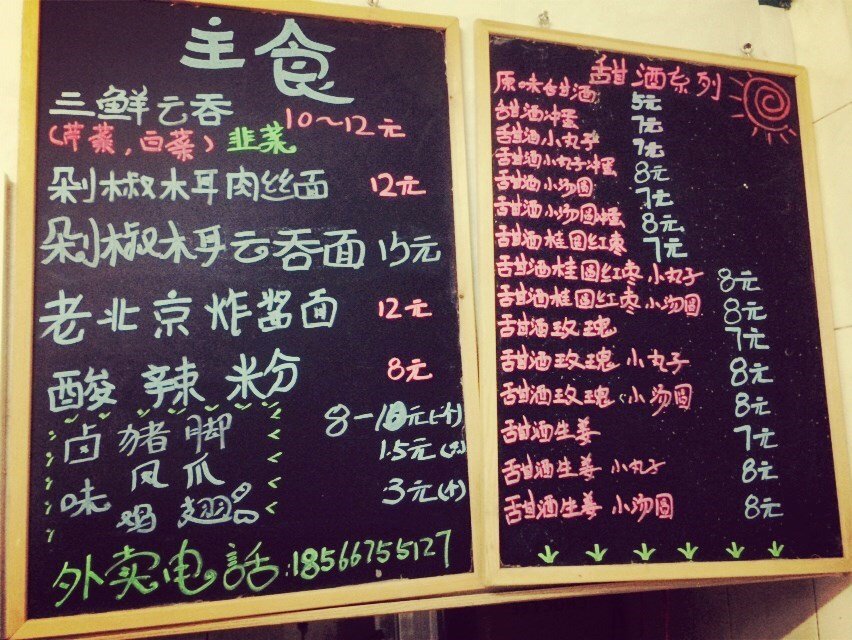 主食
三鲜云吞
(芹菜,白菜) 韭菜 10~12元
剁椒木耳肉丝面 12元
剁椒木耳云吞面 15元
老北京炸酱面 12元
酸辣粉 8元
卤味
猪脚 8-10元(个)
凤爪 1.5元(个)
鸡翅 3元(个)
外卖电话:18566755127
甜酒系列
原味甜酒 5元
甜酒冲蛋 7元
甜酒小丸子 7元
甜酒小丸子冲蛋 8元
甜酒小汤圆 7元
甜酒小汤圆冲蛋 8元
甜酒桂圆红枣 7元
甜酒桂圆红枣小丸子 8元
甜酒桂圆红枣小汤圆 8元
甜酒玫瑰 7元
甜酒玫瑰小丸子 8元
甜酒玫瑰小汤圆 8元
甜酒生姜 7元
甜酒生姜小丸子 8元
甜酒生姜小汤圆 8元